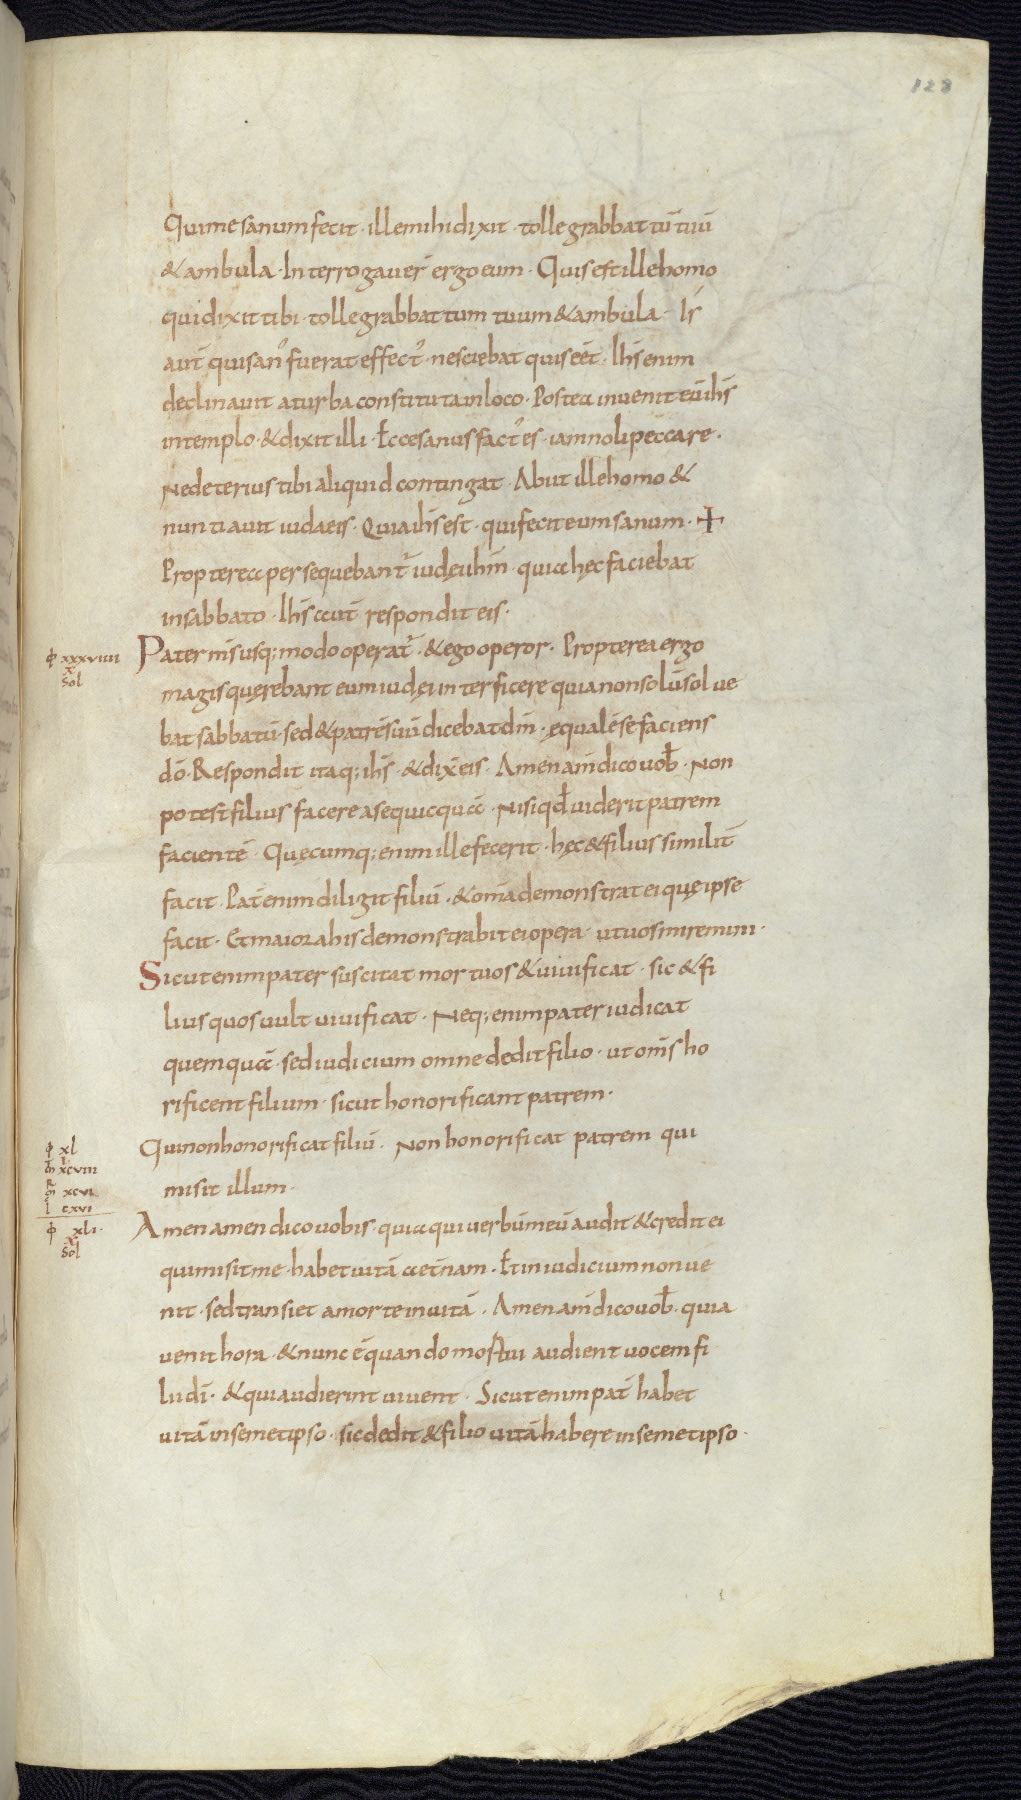 128
Qui me sanum fecit · ille mihi dixit · tolle grabbattū tuū
& ambula · Interrogauer̄ ergo eum · Quis est ille homo
qui dixit tibi · tolle grabbattum tuum & ambula · Is
aut̄ qui san᾿ fuerat effect᾿ · nesciebat quis eēt · Ihs̄ enim
declinauit a turba constituta in loco · Postea inuenit eū ihs̄
in templo · & dixit illi · Ecce sanus fact᾿ es · iam noli peccare ·
Ne deterius tibi aliquid contingat · Abiit ille homo &
nuntiauit iudaeis · Quia ihs̄ est · qui fecit eum sanum · +
Propterea persequebant᾿ iudęi ihm̄ · quia hęc faciebat
in sabbato · Ihs̄ aut̄ respondit eis ·
φ xxxviiii
x
Sol
Pater m̄s usq; modo operat᾿ · & ego operor · Propterea ergo
magis quęrebant eum iudęi interficere quia non solū solue
bat sabbatū · sed & patrē suū dicebat dm̄ · ęqualē se faciens
dō · Respondit itaq; ihs̄ · & dix̄ eis · Amen am̄ dico uob̄ · Non
potest filius facere a se quicquā · Nisi qd̄ uiderit patrem
facientē · Quęcumq; enim ille fecerit · hęc & filius similit̄
facit · Pat̄ enim diligit filiū · & om̄ia demonstrat ei quę ipse
facit · Et maiora his demonstrabit ei opera · ut uos miremini ·
Sicut enim pater suscitat mortuos & uiuificat · sic & fi
lius quos uult uiuificat · Neq; enim pater iudicat
quemquā · sed iudicium omne dedit filio · ut om̄s ho
rificent filium · sicut honorificant patrem ·
φ xl
m̄ xcviii
xcvi
l cxvi
Qui non honorificat filiū · Non honorificat patrem qui
misit illum ·
φ xli ·
x
Sol
Amen amen dico uobis · quia qui uerbū meū audit & credit ei
qui misit me · habet uitā aet̄nam · Et in iudicium non ue
nit · sed transiet a morte in uitā · Amen am̄ dico uob̄ · quia
uenit hora · & nunc ē quando mortui audient uocem fi
lii dī · & qui audierint uiuent · Sicut enim pat̄ habet
uitā in semetipso · sic dedit & filio uitā habere in semetipso ·